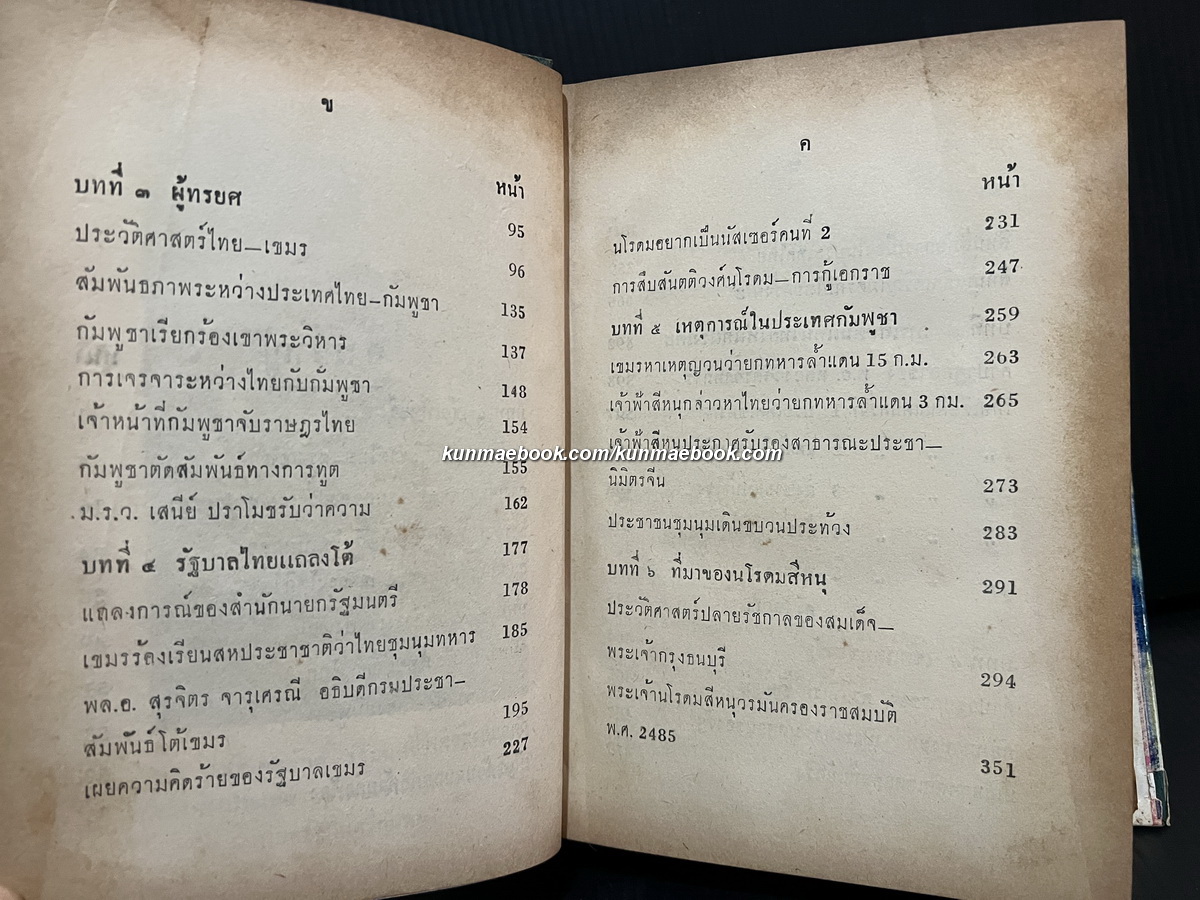 ข
หน้า
บทที่ ๓ ผู้ทรยศ 95
ประวัติศาสตร์ไทย—เขมร 96
สัมพันธภาพระหว่างประเทศไทย—กัมพูชา 135
กัมพูชาเรียกร้องเขาพระวิหาร 137
การเจรจาระหว่างไทยกับกัมพูชา 148
เจ้าหน้าที่กัมพูชาจับราษฎรไทย 154
กัมพูชาตัดสัมพันธ์ทางการทูต 155
ม.ร.ว. เสนีย์ ปราโมชรับว่าความ 162
บทที่ ๔ รัฐบาลไทยแถลงโต้ 177
แถลงการณ์ของสำนักนายกรัฐมนตรี 178
เขมรร้องเรียนสหประชาชาติว่าไทยชุมนุมทหาร 185
พล.อ. สุรจิตร จารุเศรณี อธิบดีกรมประชา—
สัมพันธ์โต้เขมร 195
เผยความคิดร้ายของรัฐบาลเขมร 227
ค
หน้า
นโรดมอยากเป็นนัสเซอร์คนที่ 2 231
การสืบสันตติวงศ์นโรดม—การกู้เอกราช 247
บทที่ ๕ เหตุการณ์ในประเทศกัมพูชา 259
เขมรหาเหตุญวนว่ายกทหารล้ำแดน 15 ก.ม. 263
เจ้าฟ้าสีหนุกล่าวหาไทยว่ายกทหารล้ำแดน 3 กม. 265
เจ้าฟ้าสีหนุประกาศรับรองสาธารณะประชา—
นิมิตรจีน 273
ประชาชนชุมนุมเดินขบวนประท้วง 283
บทที่ ๖ ที่มาของนโรดมสีหนุ 291
ประวัติศาสตร์ปลายรัชกาลของสมเด็จ—
พระเจ้ากรุงธนบุรี 294
พระเจ้านโรดมสีหนุวรมันครองราชสมบัติ
พ.ศ. 2485 351
kunmaebook.com/kunmaebook.com